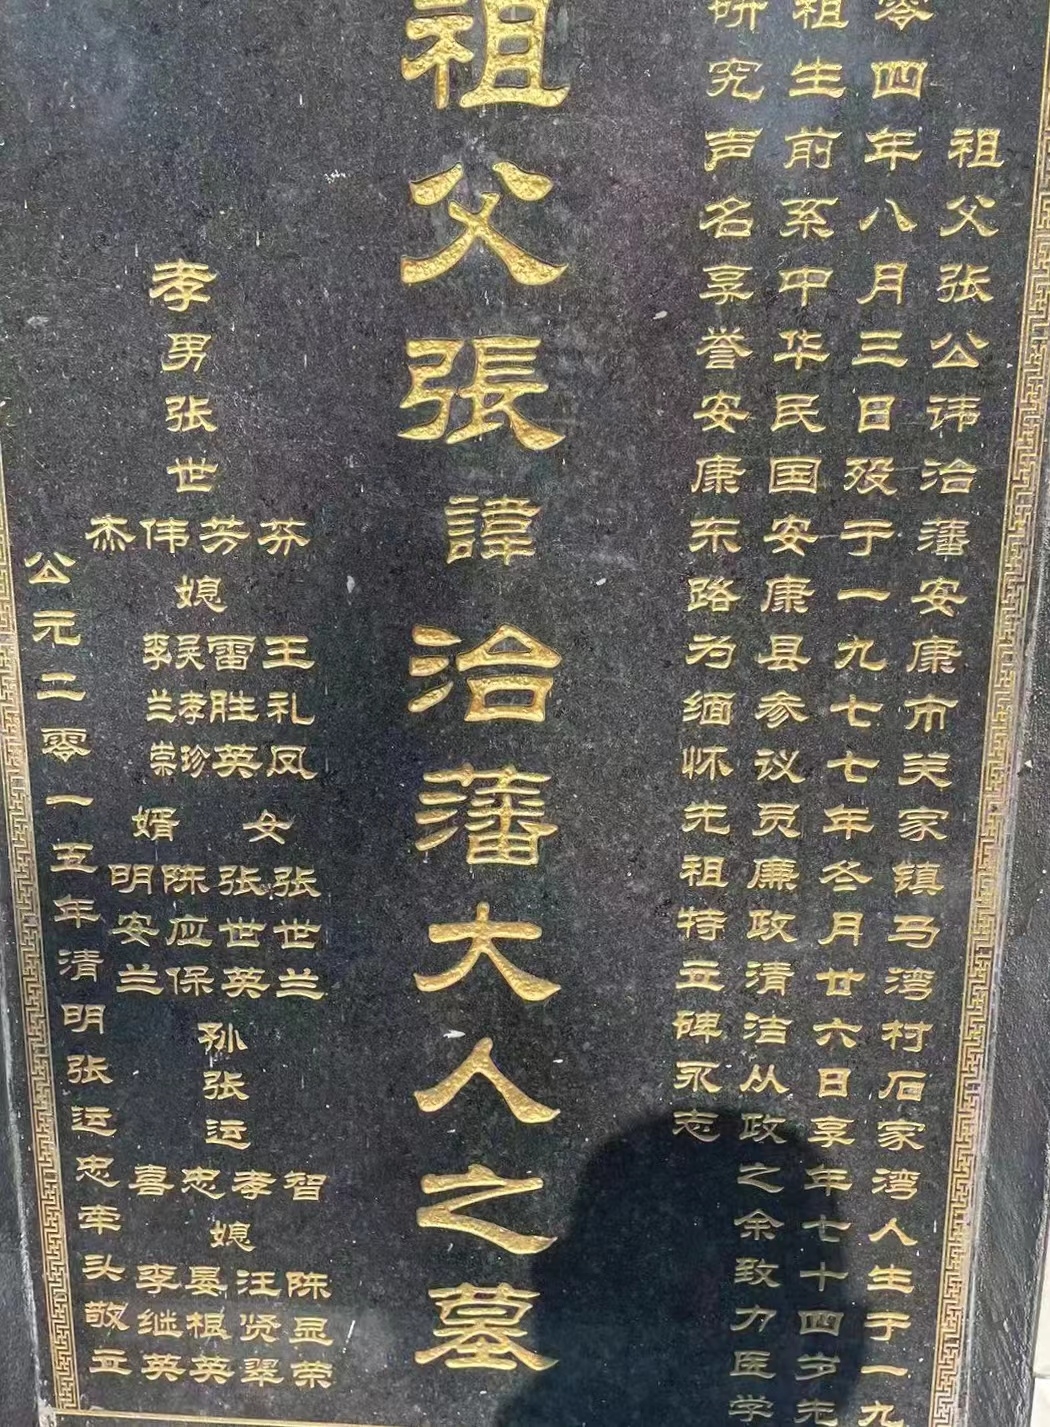 祖父张公讳治藩安康市关家镇马湾村石家湾人生于一九
零四年八月三日殁于一九七七年冬月廿六日享年七十四岁先
祖生前系中华民国安康县参议员廉政清洁从政之余致力医学
研究声名享誉安康东路为缅怀先祖特立碑永志
祖父張諱治藩大人之墓
孝男张世
芬
芳
伟
杰
媳
王礼凤
雷胜英
吴孝珍
李兰崇
女
张世兰
张世英
婿
陈应保
明安兰
孙张运
智
孝
忠
喜
媳
陈显荣
汪贤翠
晏根英
李继英
公元二零一五年清明张运忠牵头敬立